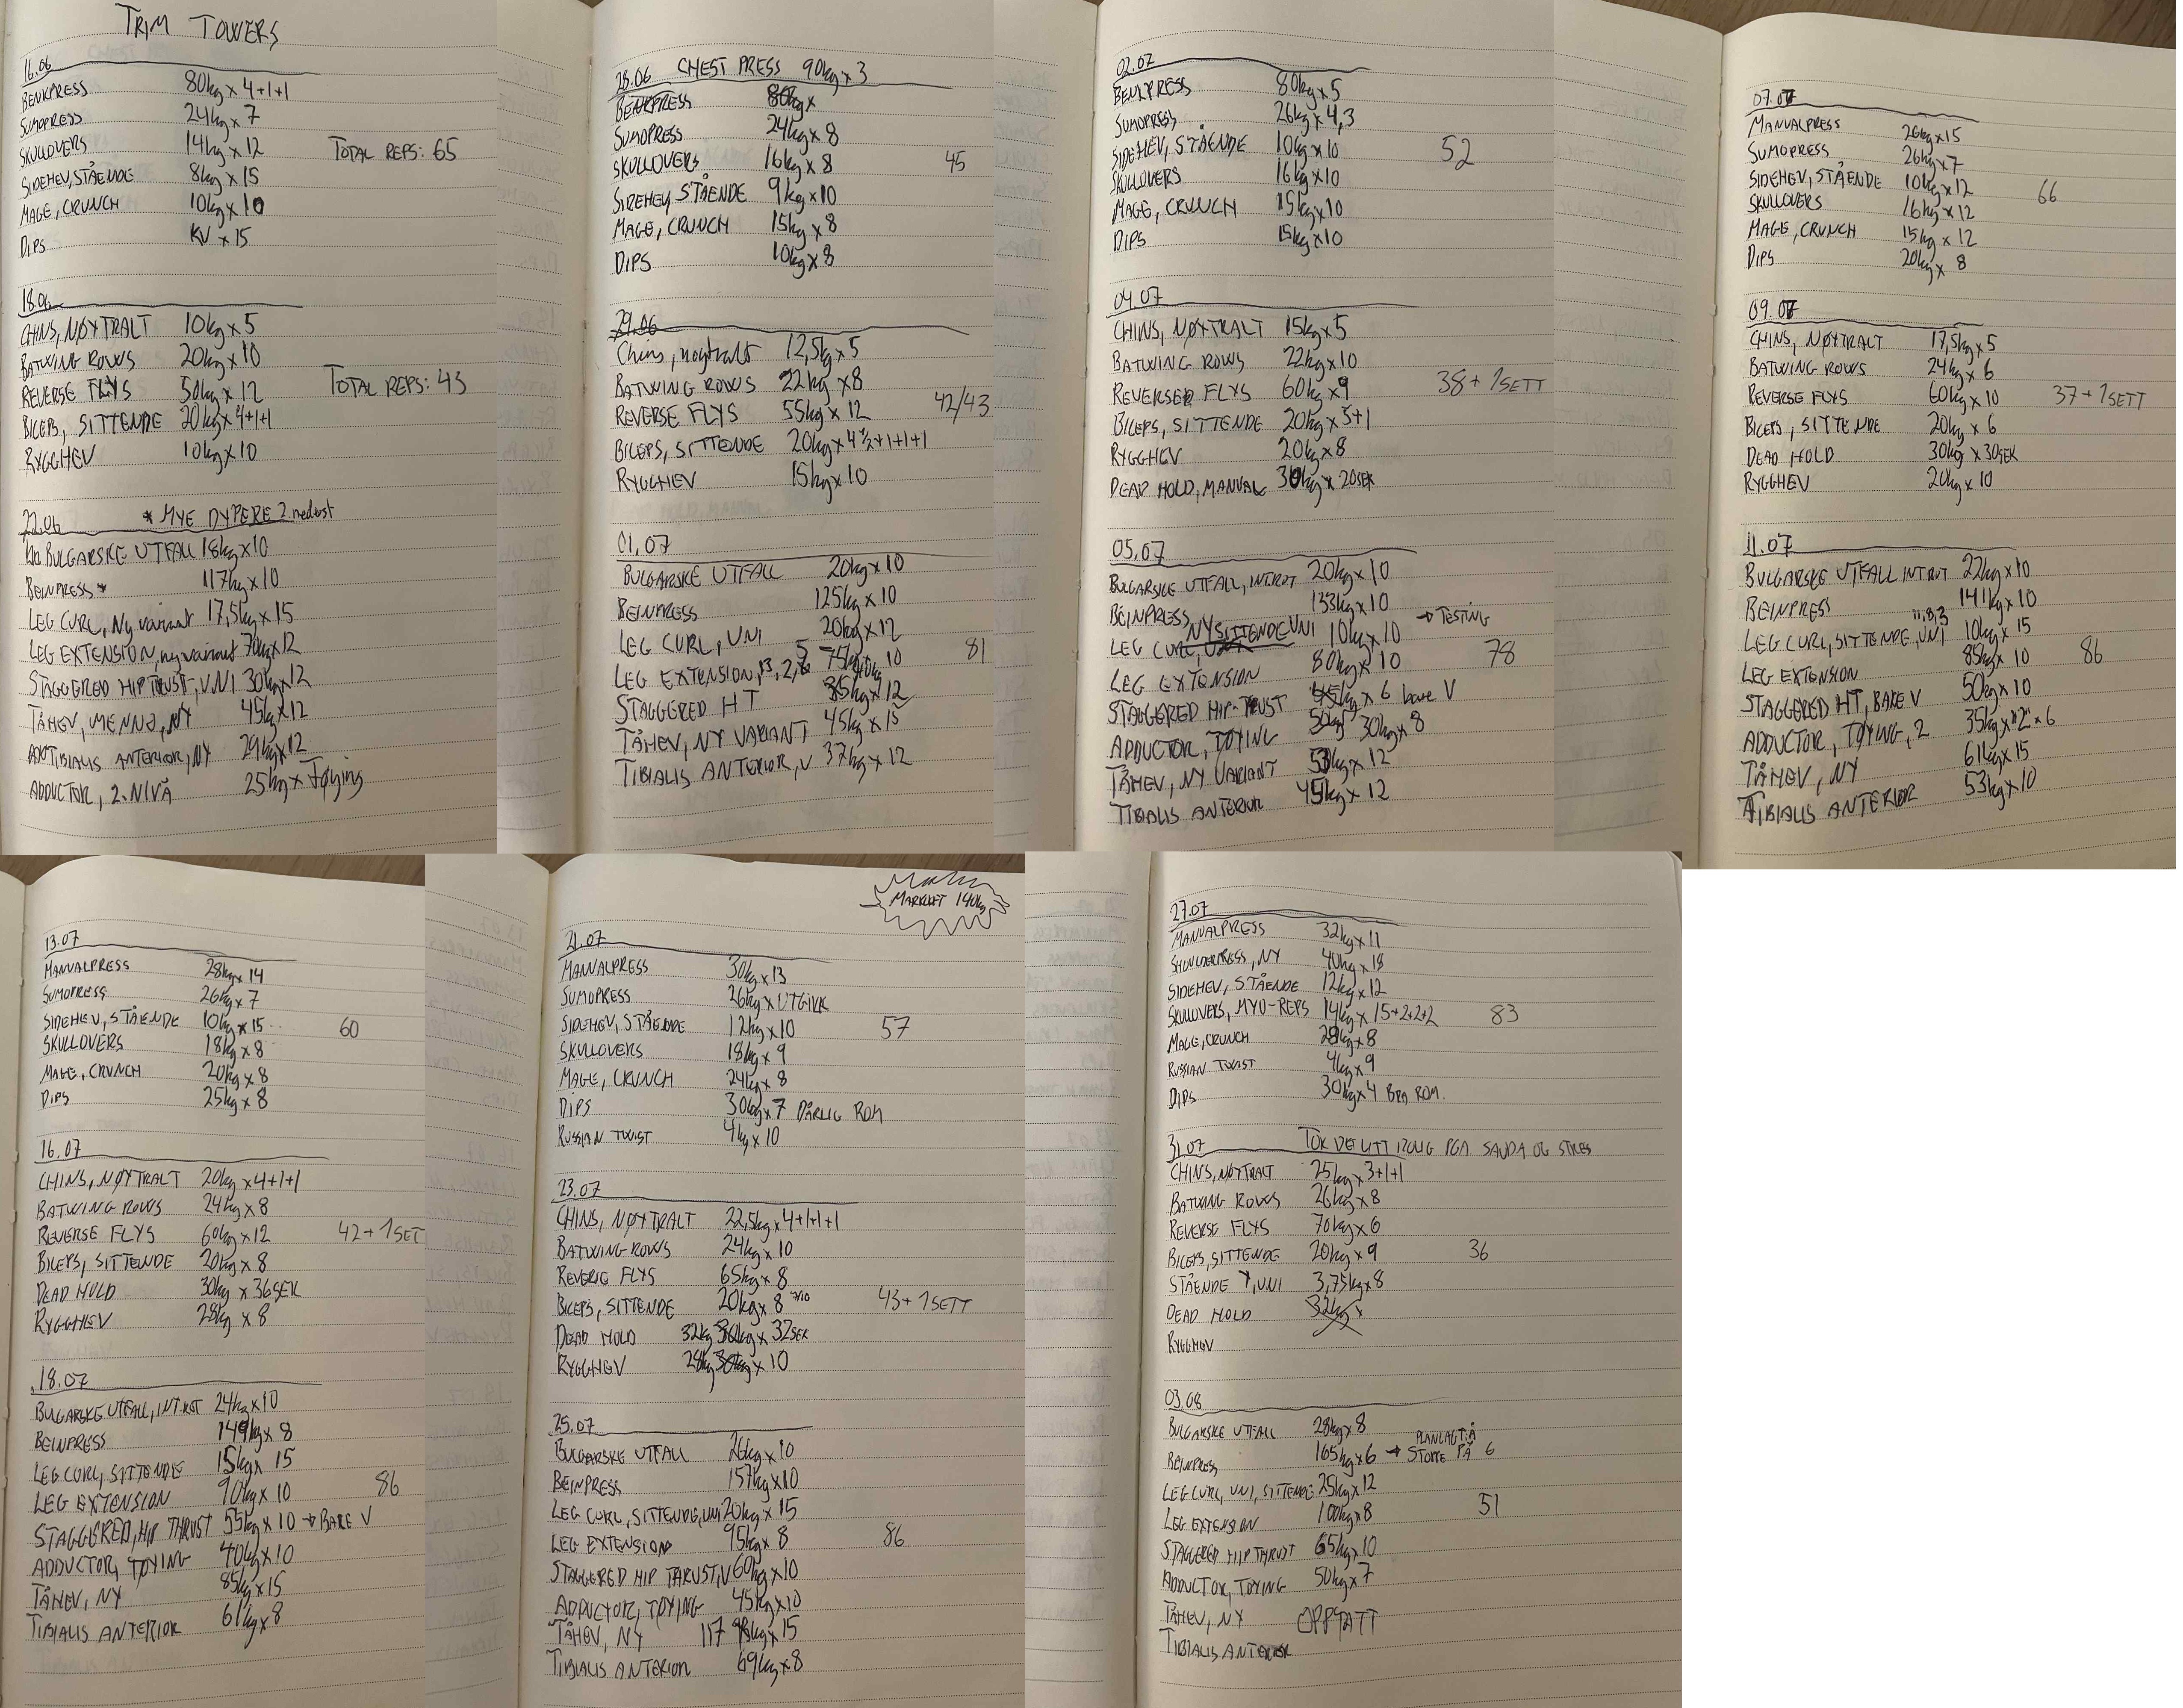 TRIM TOWERS
16.06
BENKPRESS 80kg x 4+1+1
SUMOPRESS 24kg x 7
SKULLOVERS 14kg x 12 TOTAL REPS: 65
SIDEHEV, STÅENDE 8kg x 15
MAGE, CRUNCH 10kg x 10
DIPS KV x 15
18.06
CHINS, NØYTRALT 10kg x 5
BATWING ROWS 20kg x 10
REVERSE FLYS 50kg x 12 TOTAL REPS: 43
BICEPS, SITTENDE 20kg x 4+1+1
RYGGHEV 10kg x 10
22.06 * MYE DYPERE 2 nederst
BULGARSKE UTFALL 18kg x 10
BEINPRESS * 117kg x 10
LEG CURL, Ny variant 17,5kg x 15
LEG EXTENSION, ny variant 70kg x 12
STAGGERED HIPTRUST, UNI 30kg x 12
TÅHEV, MENNO, NY 45kg x 12
TIBIALIS ANTERIOR, NY 29kg x 12
ADDUCTOR, 2. NIVÅ 25kg x Tøying
28.06 CHEST PRESS 90kg x 3
BENKPRESS 80kg x
SUMOPRESS 24kg x 8
SKULLOVERS 16kg x 8 45
SIDEHEV, STÅENDE 9kg x 10
MAGE, CRUNCH 15kg x 8
DIPS 10kg x 8
29.06
Chins, nøytralt 12,5kg x 5
BATWING ROWS 22kg x 8
REVERSE FLYS 55kg x 12 42/43
BICEPS, SITTENDE 20kg x 4 1/2+1+1+1
RYGGHEV 15kg x 10
01.07
BULGARSKE UTFALL 20kg x 10
BEINPRESS 125kg x 10
LEG CURL, UNI 20kg x 12 81
LEG EXTENSION, 13, 2, 5 75kg x 10
STAGGERED HT 35kg x 12
TÅHEV, NY VARIANT 45kg x 15
TIBIALIS ANTERIOR, V 37kg x 12
02.07
BENKPRESS 80kg x 5
SUMOPRESS 26kg x 4,3
SIDEHEV, STÅENDE 10kg x 10 52
SKULLOVERS 16kg x 10
MAGE, CRUNCH 15kg x 10
DIPS 15kg x 10
04.07
CHINS, NØYTRALT 15kg x 5
BATWING ROWS 22kg x 10
REVERSE FLYS 60kg x 9 38 + 1 SETT
BICEPS, SITTENDE 20kg x 5+1
RYGGHEV 20kg x 8
DEAD HOLD, MANUAL 30kg x 20SEK
05.07
BULGARSKE UTFALL, INTROT 20kg x 10
BEINPRESS 133kg x 10
LEG CURL, NY SITTENDE UNI 10kg x 10 → TESTING
LEG EXTENSION 80kg x 10 78
STAGGERED HIP-TRUST 45kg x 6 bare V
ADDUCTOR, TØYING 30kg x 8
TÅHEV, NY VARIANT 53kg x 12
TIBIALIS ANTERIOR 45kg x 12
07.07
MANUALPRESS 26kg x 15
SUMOPRESS 26kg x 7
SIDEHEV, STÅENDE 10kg x 12 66
SKULLOVERS 16kg x 12
MAGE, CRUNCH 15kg x 12
DIPS 20kg x 8
09.07
CHINS, NØYTRALT 17,5kg x 5
BATWING ROWS 24kg x 6
REVERSE FLYS 60kg x 10 37 + 1 SETT
BICEPS, SITTENDE 20kg x 6
DEAD HOLD 30kg x 30SEK
RYGGHEV 20kg x 10
11.07
BULGARSKE UTFALL INTROT 22kg x 10
BEINPRESS 141kg x 10
LEG CURL, SITTENDE, UNI 11,9,3 10kg x 15
LEG EXTENSION 85kg x 10 86
STAGGERED HT, BARE V 50kg x 10
ADDUCTOR, TØYING, 2 35kg x "2" x 6
TÅHEV, NY 61kg x 15
TIBIALIS ANTERIOR 53kg x 10
13.07
MANUALPRESS 28kg x 14
SUMOPRESS 26kg x 7
SIDEHEV, STÅENDE 10kg x 15 60
SKULLOVERS 18kg x 8
MAGE, CRUNCH 20kg x 8
DIPS 25kg x 8
16.07
CHINS, NØYTRALT 20kg x 4+1+1
BATWING ROWS 24kg x 8
REVERSE FLYS 60kg x 12 42 + 1 SET
BICEPS, SITTENDE 20kg x 8
DEAD HOLD 30kg x 36SEK
RYGGHEV 28kg x 8
18.07
BULGARSKE UTFALL, INTROT 24kg x 10
BEINPRESS 149kg x 8
LEG CURL, SITTENDE 15kg x 15
LEG EXTENSION 90kg x 10 86
STAGGERED, HIP THRUST 55kg x 10 → BARE V
ADDUCTOR, TØYING 40kg x 10
TÅHEV, NY 85kg x 15
TIBIALIS ANTERIOR 61kg x 8
MARKLØFT 140kg
21.07
MANUALPRESS 30kg x 13
SUMOPRESS 26kg x UTGIKK
SIDEHEV, STÅENDE 12kg x 10 57
SKULLOVERS 18kg x 9
MAGE, CRUNCH 24kg x 8
DIPS 30kg x 7 DÅRLIG ROM
RUSSIAN TWIST 4kg x 10
23.07
CHINS, NØYTRALT 22,5kg x 4+1+1+1
BATWING ROWS 24kg x 10
REVERSE FLYS 65kg x 8
BICEPS, SITTENDE 20kg x 8 43 + 1 SETT
DEAD HOLD 32kg 30kg x 32SEK
RYGGHEV 28kg 30kg x 10
25.07
BULGARSKE UTFALL 26kg x 10
BEINPRESS 157kg x 10
LEG CURL, SITTENDE, UNI 20kg x 15
LEG EXTENSION 95kg x 8 86
STAGGERED HIP THRUST, V 60kg x 10
ADDUCTOR, TØYING 45kg x 10
TÅHEV, NY 117 98kg x 15
TIBIALIS ANTERIOR 69kg x 8
27.07
MANUALPRESS 32kg x 11
SHOULDERPRESS, NY 40kg x 18
SIDEHEV, STÅENDE 12kg x 12
SKULLOVERS, MYO-REPS 14kg x 15+2+2+2 83
MAGE, CRUNCH 28kg x 8
RUSSIAN TWIST 4kg x 9
DIPS 30kg x 4 BRA ROM.
31.07 TOK DET LITT ROLIG PGA SAUDA OG STRES
CHINS, NØYTRALT 25kg x 3+1+1
BATWING ROWS 26kg x 8
REVERSE FLYS 70kg x 6
BICEPS, SITTENDE 20kg x 9 36
STÅENDE Y, UNI 3,75kg x 8
DEAD HOLD 32kg x
RYGGHEV
03.08
BULGARSKE UTFALL 28kg x 8
BEINPRESS 165kg x 6 → PLANLAGT Å STOPPE PÅ 6
LEG CURL, UNI, SITTENDE 25kg x 12
LEG EXTENSION 100kg x 8 51
STAGGERED HIP THRUST 65kg x 10
ADDUCTOR, TØYING 50kg x 7
TÅHEV, NY OPPTATT
TIBIALIS ANTERIOR